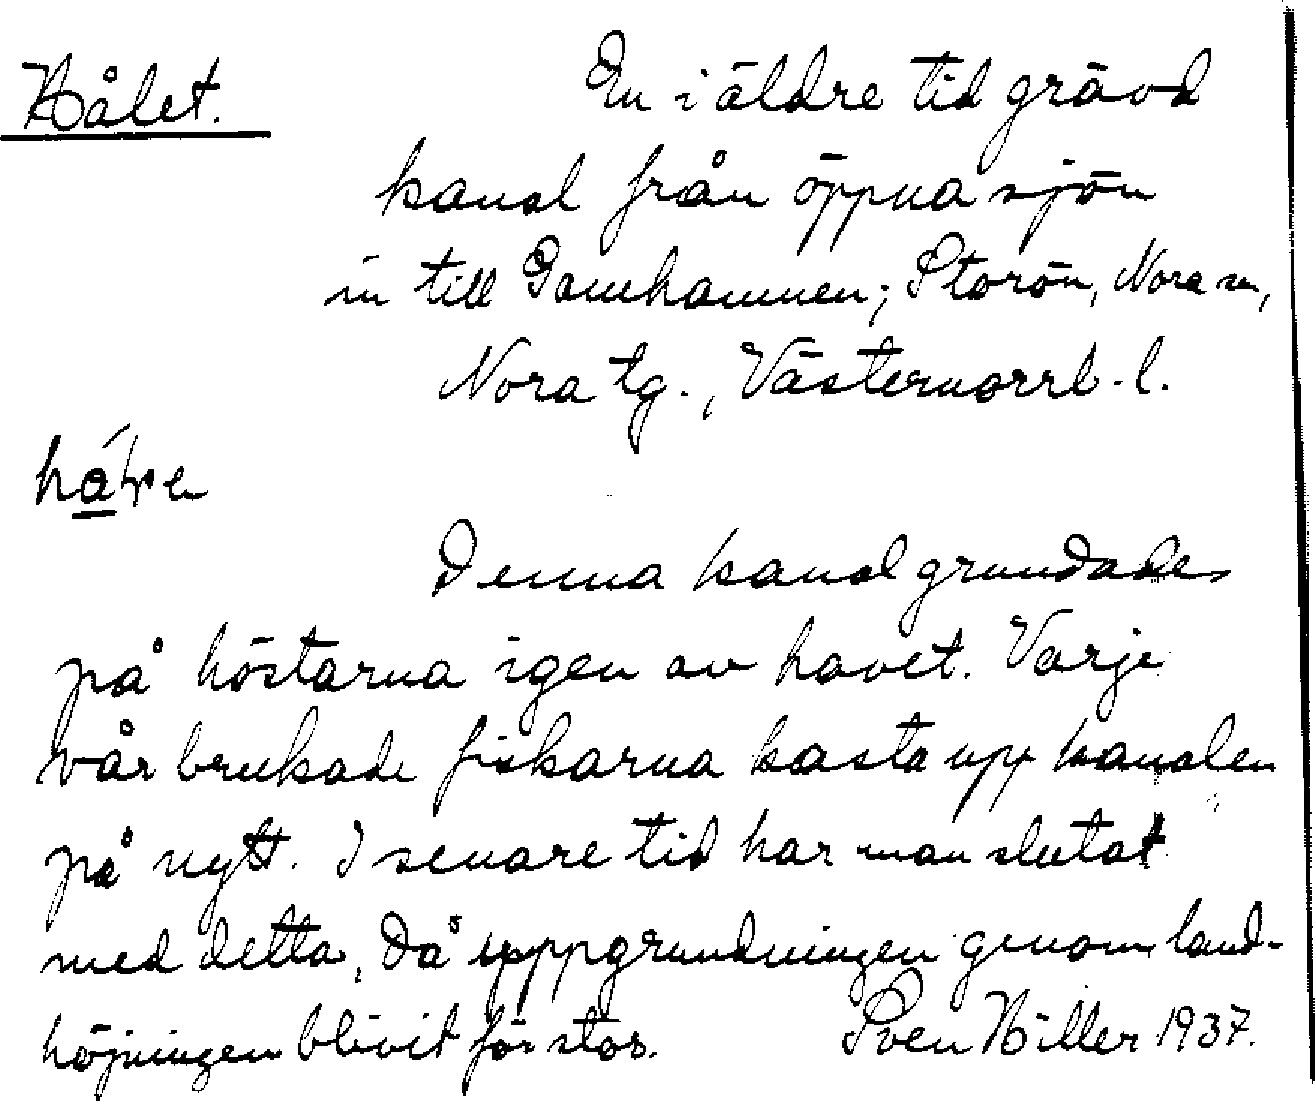 Hålet. En i äldre tid grävd
kanal från öppna sjön
in till Gamhamnen; Storön, Nora sn,
Nora tg., Västernorrl. l.
Denna kanal grundades
på höstarna igen av havet. Varje
vår brukade fiskarna kasta upp kanalen
på nytt. I senare tid har man slutat
med detta, då uppgrundningen genom land-
höjningen blivit för stor. Sven Hiller 1937.